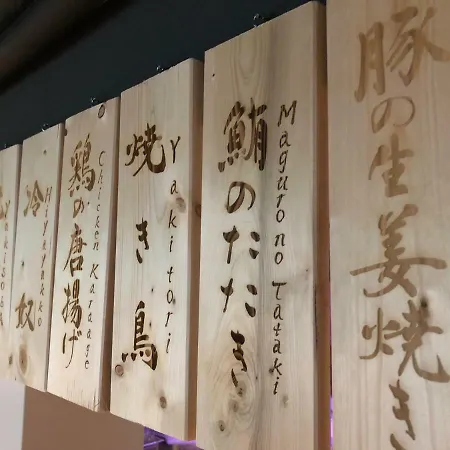 豚の生姜焼き
鮪のたたき
Maguro no Tataki
焼き鳥
Yakitori
鶏の唐揚げ
Chicken Karaage
冷奴
Hiyayakko
Yakisoba